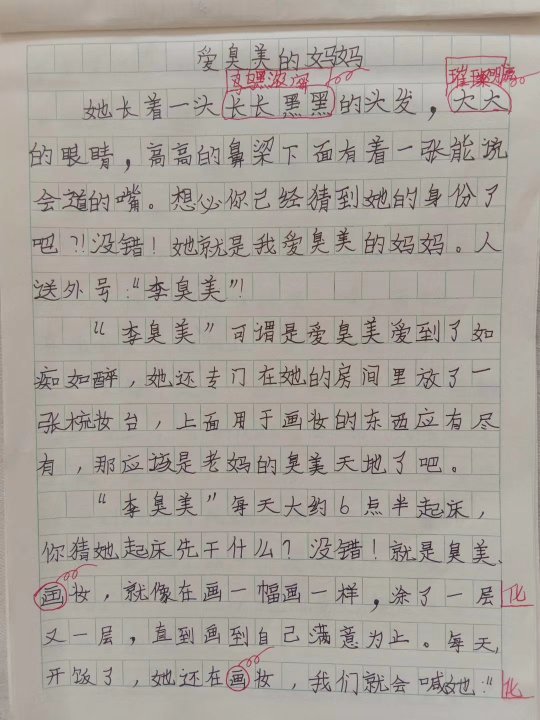 爱臭美的妈妈
乌黑浓密
璀璨明亮
她长着一头长长黑黑的头发，大大
的眼睛，高高的鼻梁下面有着一张能说
会道的嘴。想必你已经猜到她的身份了
吧？！没错！她就是我爱臭美的妈妈。人
送外号：“李臭美”！
“李臭美”可谓是爱臭美爱到了如
痴如醉，她还专门在她的房间里放了一
张梳妆台，上面用于画妆的东西应有尽
有，那应该是老妈的臭美天地了吧。
“李臭美”每天大约6点半起床，
你猜她起床先干什么？没错！就是臭美、
画妆，就像在画一幅画一样，涂了一层
化
又一层，直到画到自己满意为止。每天，
开饭了，她还在画妆，我们就会喊她：“
化